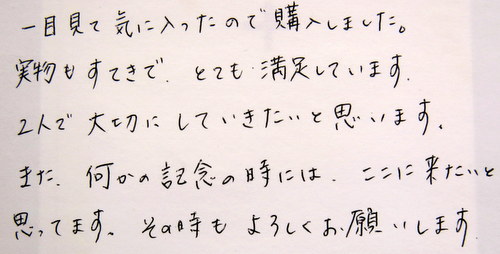 一目見て気に入ったので購入しました。
実物もすてきで、とても満足しています。
2人で大切にしていきたいと思います。
また、何かの記念の時には、ここに来たいと
思ってます。その時もよろしくお願いします